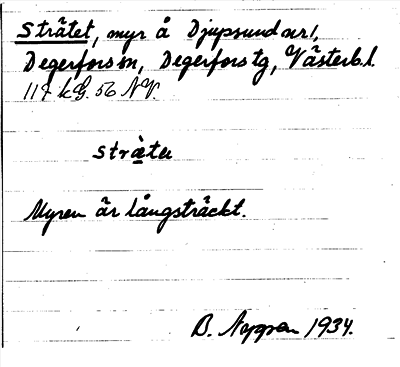 Strätet, myr å Djupsundnr 1,
Degerfors sn, Degerfors tg, Västerb. l.
117 kG. 56 NV.
strätɐ
Myren är långsträckt.
B. Nygren 1934.